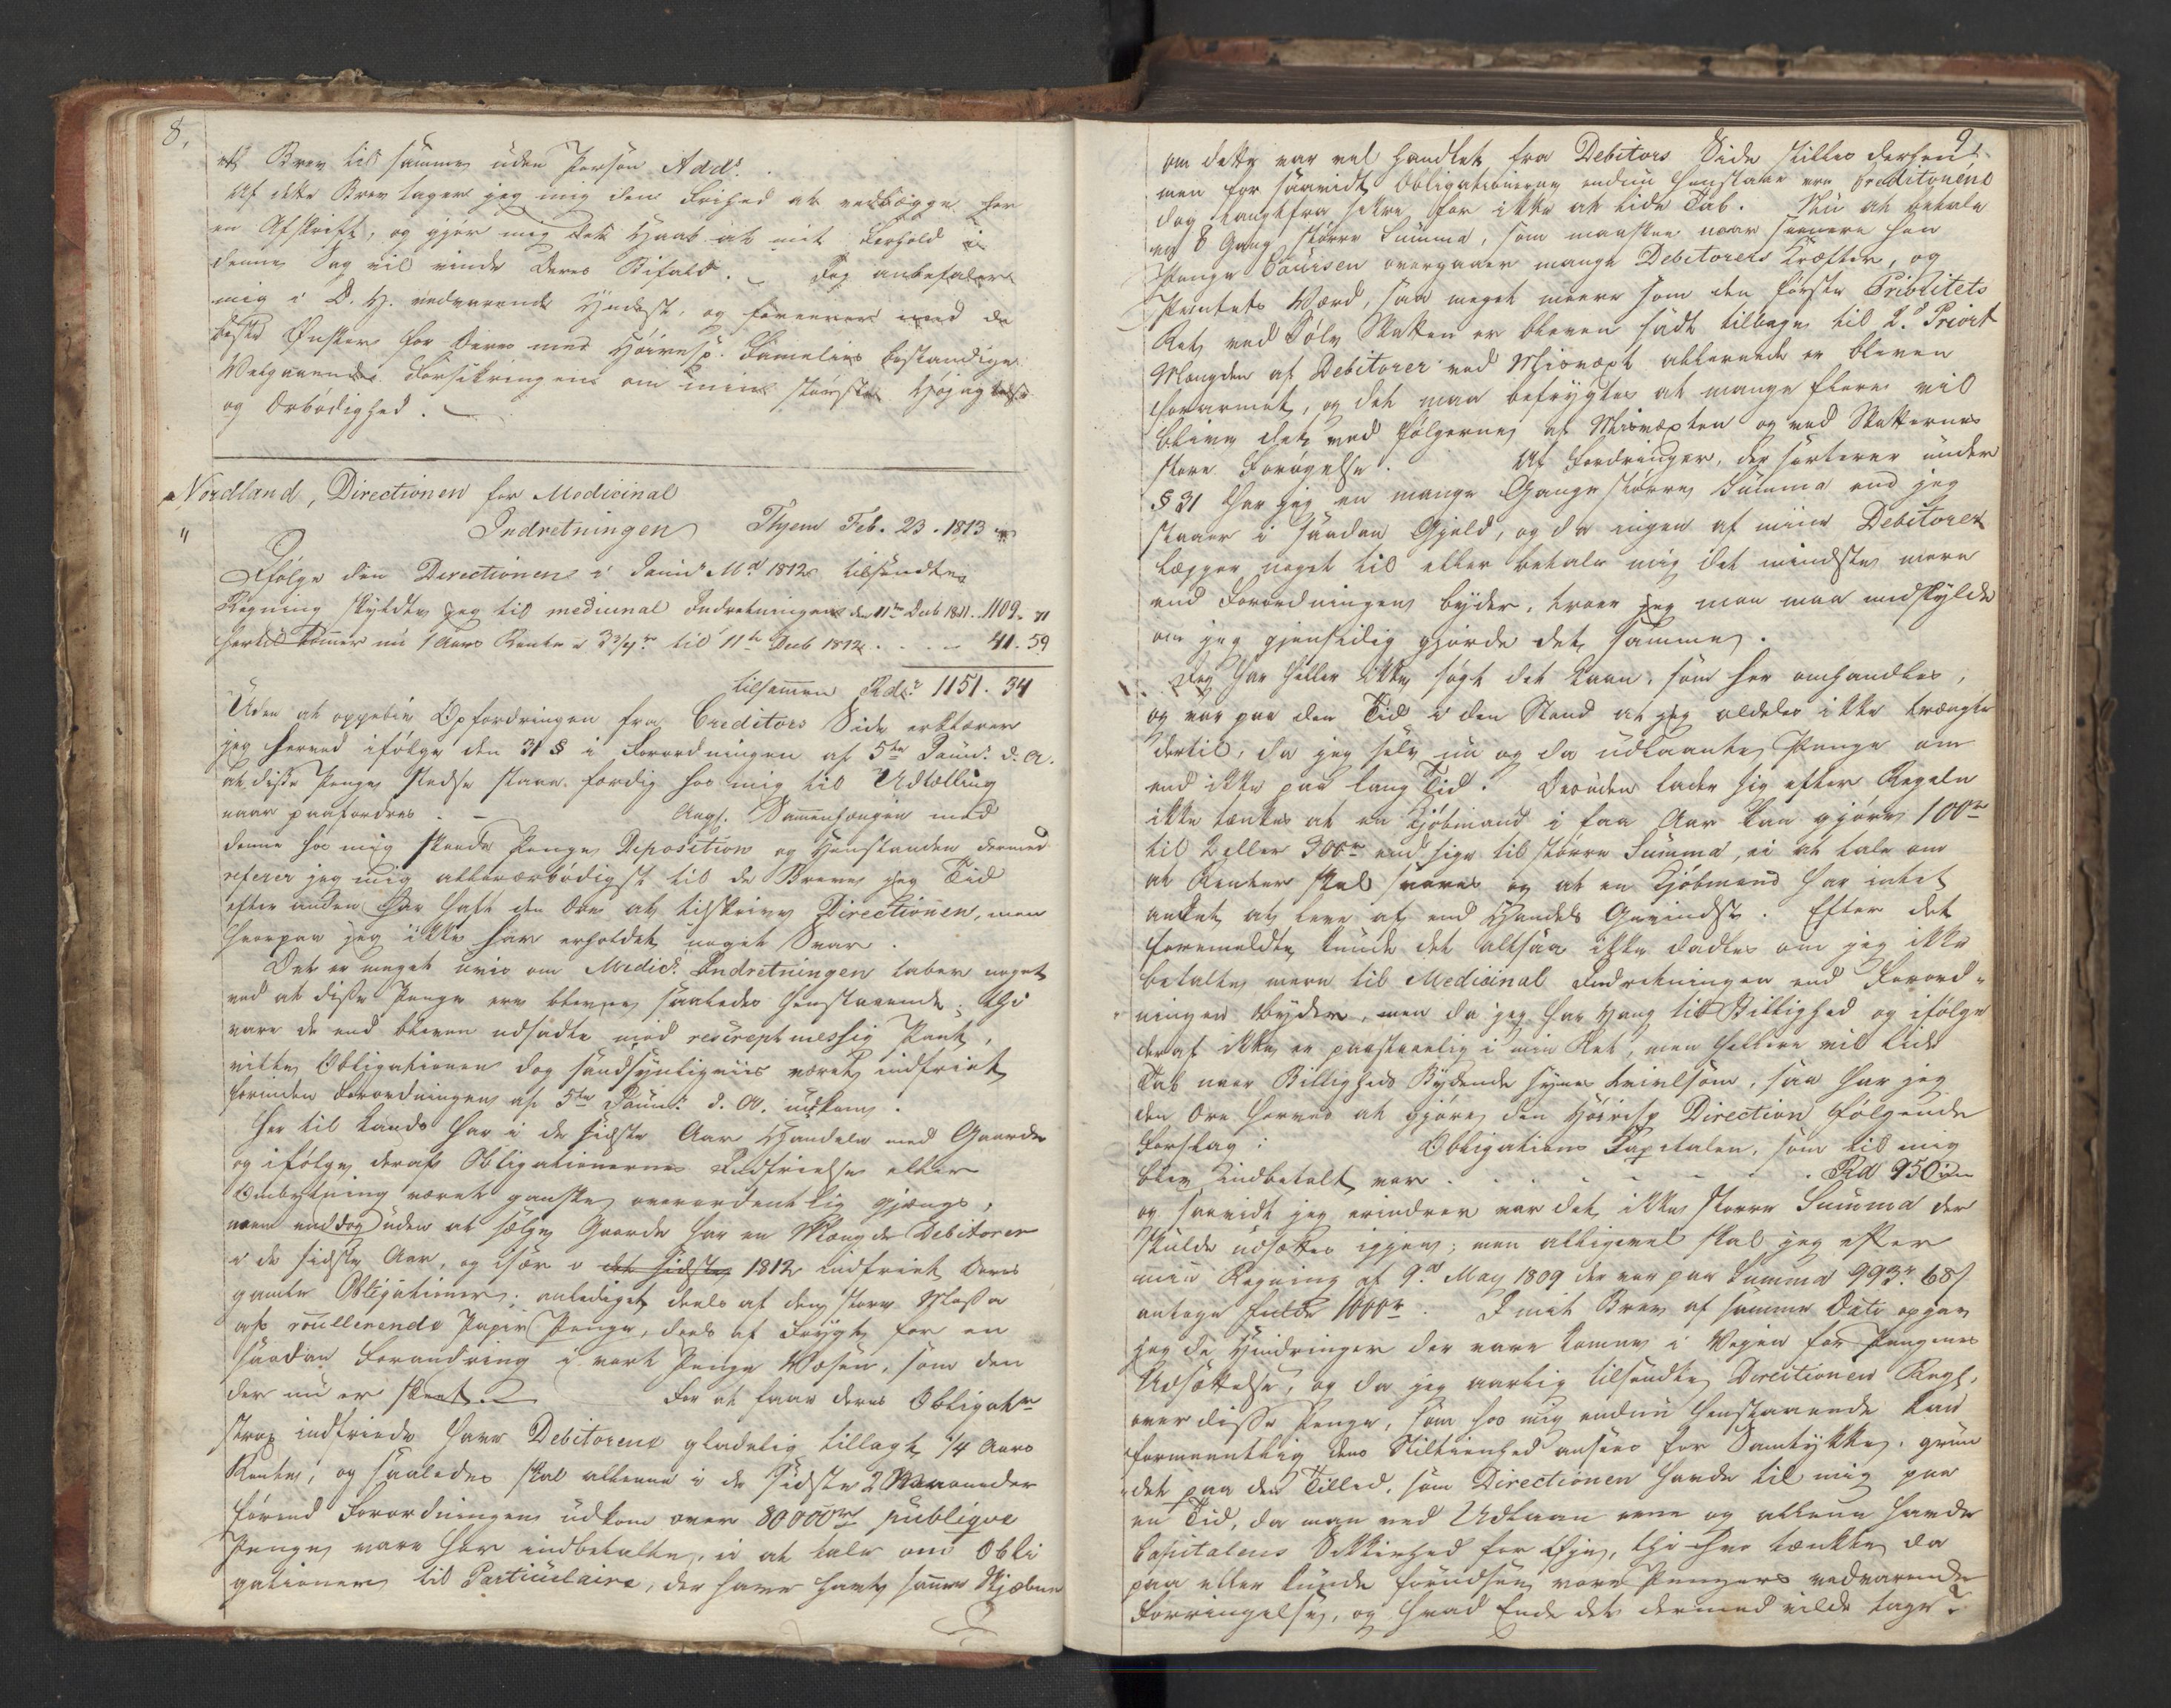 8.
et Brev til samme uden Person Add:
Af dette Brev tager jeg mig den Frihed at vedlægge her
en Afskrift, og gjør mig det Haab at mit Forhold i
denne Sag vil vinde Deres Bifald. Jeg anbefaler
mig i D. H. vedvarende Yndest, og forener med de
beste Ønsker for Deres med Høivelb. Families bestandige
Velgaaende Forsikringen om min største Højagtelse
og Ærbødighed.
Nordland, Directionen for Medicinal
Indretningen Thjem Feb. 23. 1813
Ifølge den Directionen i Janu: Md 1812 tilsendte
Regning skyldte jeg til medicinal Indretningen den 11te Decb 1811. 1109. 71
hertil kommer nu 1 Aars Rente a 3 3/4 til 11te Decb 1812 41. 59
tilsammen Rd 1151. 34
Uden at oppebie Opfordringen fra Creditors Side erklærer
jeg herved ifølge den 31 § i Forordningen af 5te Janu: d. A.
at disse Penge stedse staae færdig hos mig til Udtælling
naar paafordres. Ang. Sammenhængen med
denne hos mig skeede Penge Deposition og Henstanden dermed
referer jeg mig allerærbødigst til de Breve jeg Tid
efter anden har havt den Ære at tilskrive Directionen, men
hvorpaa jeg ikke har erholdet noget Svar.
Det er meget uvis om Medic: Indretningen taber noget
ved at disse Penge ere blevne saaledes henstaaende; thi
vare de end bleven udsadte mod rescriptmessig Pant,
vilde Obligationen dog sandsynligviis været indfriet
forinden Forordningen af 5te Janu: d. A. udkom.
Her til Lands har i de sidste Aar Handelen med Gaarde
og ifølge deraf Obligationernes Indfrielse eller
Ombytning været ganske overordentlig gjængs,
men enddog uden at sælge Gaarde har en Mængde Debitorer
i de sidste Aar, og især i det sidste 1812 indfriet deres
gamle Obligationer; anlediget deels af den store Massa
af roullerende Papir Penge, deels af Frygt for en
saadan Forandring i vort Penge Væsen, som den
der nu er skeet. For at faae deres Obligatr
strax indfriede have Debitorene gladelig tillagt 1/4 Aars
Rente, og saaledes skal allene i de sidste 2 Maaneder
førend Forordningen udkom over 80000 rd publique
Penge vare her indbetalte, ei at tale om Obli
gationer til Particulaire, der have havt samme Skjæbne
9.
om dette var vel handlet fra Debitors Side stilles derhen
men for saavidt Obligationerne endnu henstaae ere Creditorene
dog langtfra sikre for ikke at lide Tab. Nu at betale
en 8 Gang større Summa, som maaskee naar seenere hen
Penge Coursen overgaaer mange Debitorers Kræfter, og
Pantets Værd, saa meget meere som den første Prioritets
Ret ved Sølv Skatten er bleven sadt tilbage til 2d Priorit
Mængden af Debitorer ved Misvext allerede er bleven
forarmet, og det maa befrygtes at mange flere vil
blive det ved Følgerne af Misvexten og ved Skatternes
store Forøgelse. Af Fordringer, der sorterer under
§ 31 har jeg en mange Gange større Summa end jeg
staaer i saadan Gjæld, og da ingen af mine Debitorer
lægger noget til eller betale mig det mindste mere
end Forordningen byder, troer jeg man maa undskylde
om jeg gjensidig gjorde det samme.
Jeg har heller ikke søgt det Laan, som her omhandles,
og var paa den Tid i den Stand at jeg aldeles ikke trængte
dertil, da jeg selv nu og da udlaante Penge om
end ikke paa lang Tid. Desuden lader sig efter Regelen
ikke tænkes at en Kjøbmand i faa Aar kan gjøre 100 rd
til 2 eller 300 rd end sige til større Summa, ei at tale om
at Renter skal svares og at en Kjøbmand har intet
andet at leve af end Handels Gevindst. Efter det
foremeldte kunde det altsaa ikke dadles om jeg ikke
betalte mere til Medicinal Indretningen end Forord-
ningen byder, men da jeg har Hang til Billighed og ifølge
deraf ikke er paastaaelig i min Ret, men hellere vil lide
Tab naar Billigheds Bydende synes tvivlsom, saa har jeg
den Ære herved at gjøre den Høirsp Direction følgende
Forslag: Obligations Capitalen, som til mig
blev indbetalt, var Rd 950
og saavidt jeg erindrer var det ikke større Summa der
skulde udsættes igjen; men alligevel skal jeg efter
min Regning af 9de May 1809 der var paa Summa 993 r 68 s
antage fulde 1000 r. I mit Brev af samme Dato opgav
jeg de Hindringer der vare komne i Vejen for Pengenes
Udsættelse, og da jeg aarlig tilsendte Directionen Regl.
over disse Penge, som hos mig endnu henstaaende kan
formeentlig dens Stiltienhed ansees for Samtykke, grun
det paa den Tillid, som Directionen havde til mig paa
en Tid, da man ved Udlaan ene og allene havde
Capitalens Sikkerhed for Øje, thi hvo tænkte da
paa eller kunde forudsee vore Pengers vedvarende
Forringelse, og hvad Ende det dermed vilde tage?